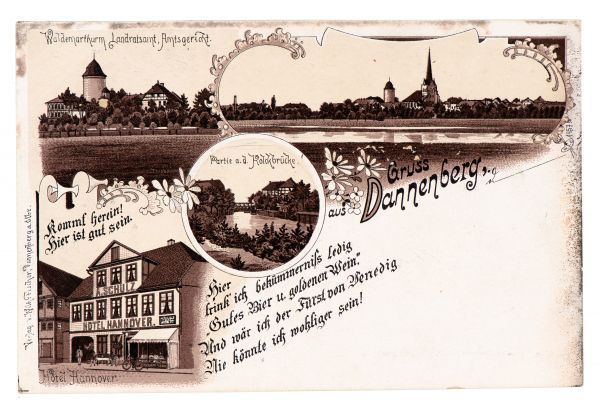 Waldemarthurm Landratsamt, Amtsgericht.
Partie a. d.
Gruss
aus Dannenberg,
Kommt herein!
Hier ist gut sein.
SCHULZ
HOTEL HANNOVER.
Hôtel Hannover
Hier
trink' ich bekümmerniss ledig
Gutes Bier u. goldenen Wein."
Und wär ich der Fürst von Venedig
Nie könnte ich wohliger sein!
Verlag v. Dannenberg a. Elbe.